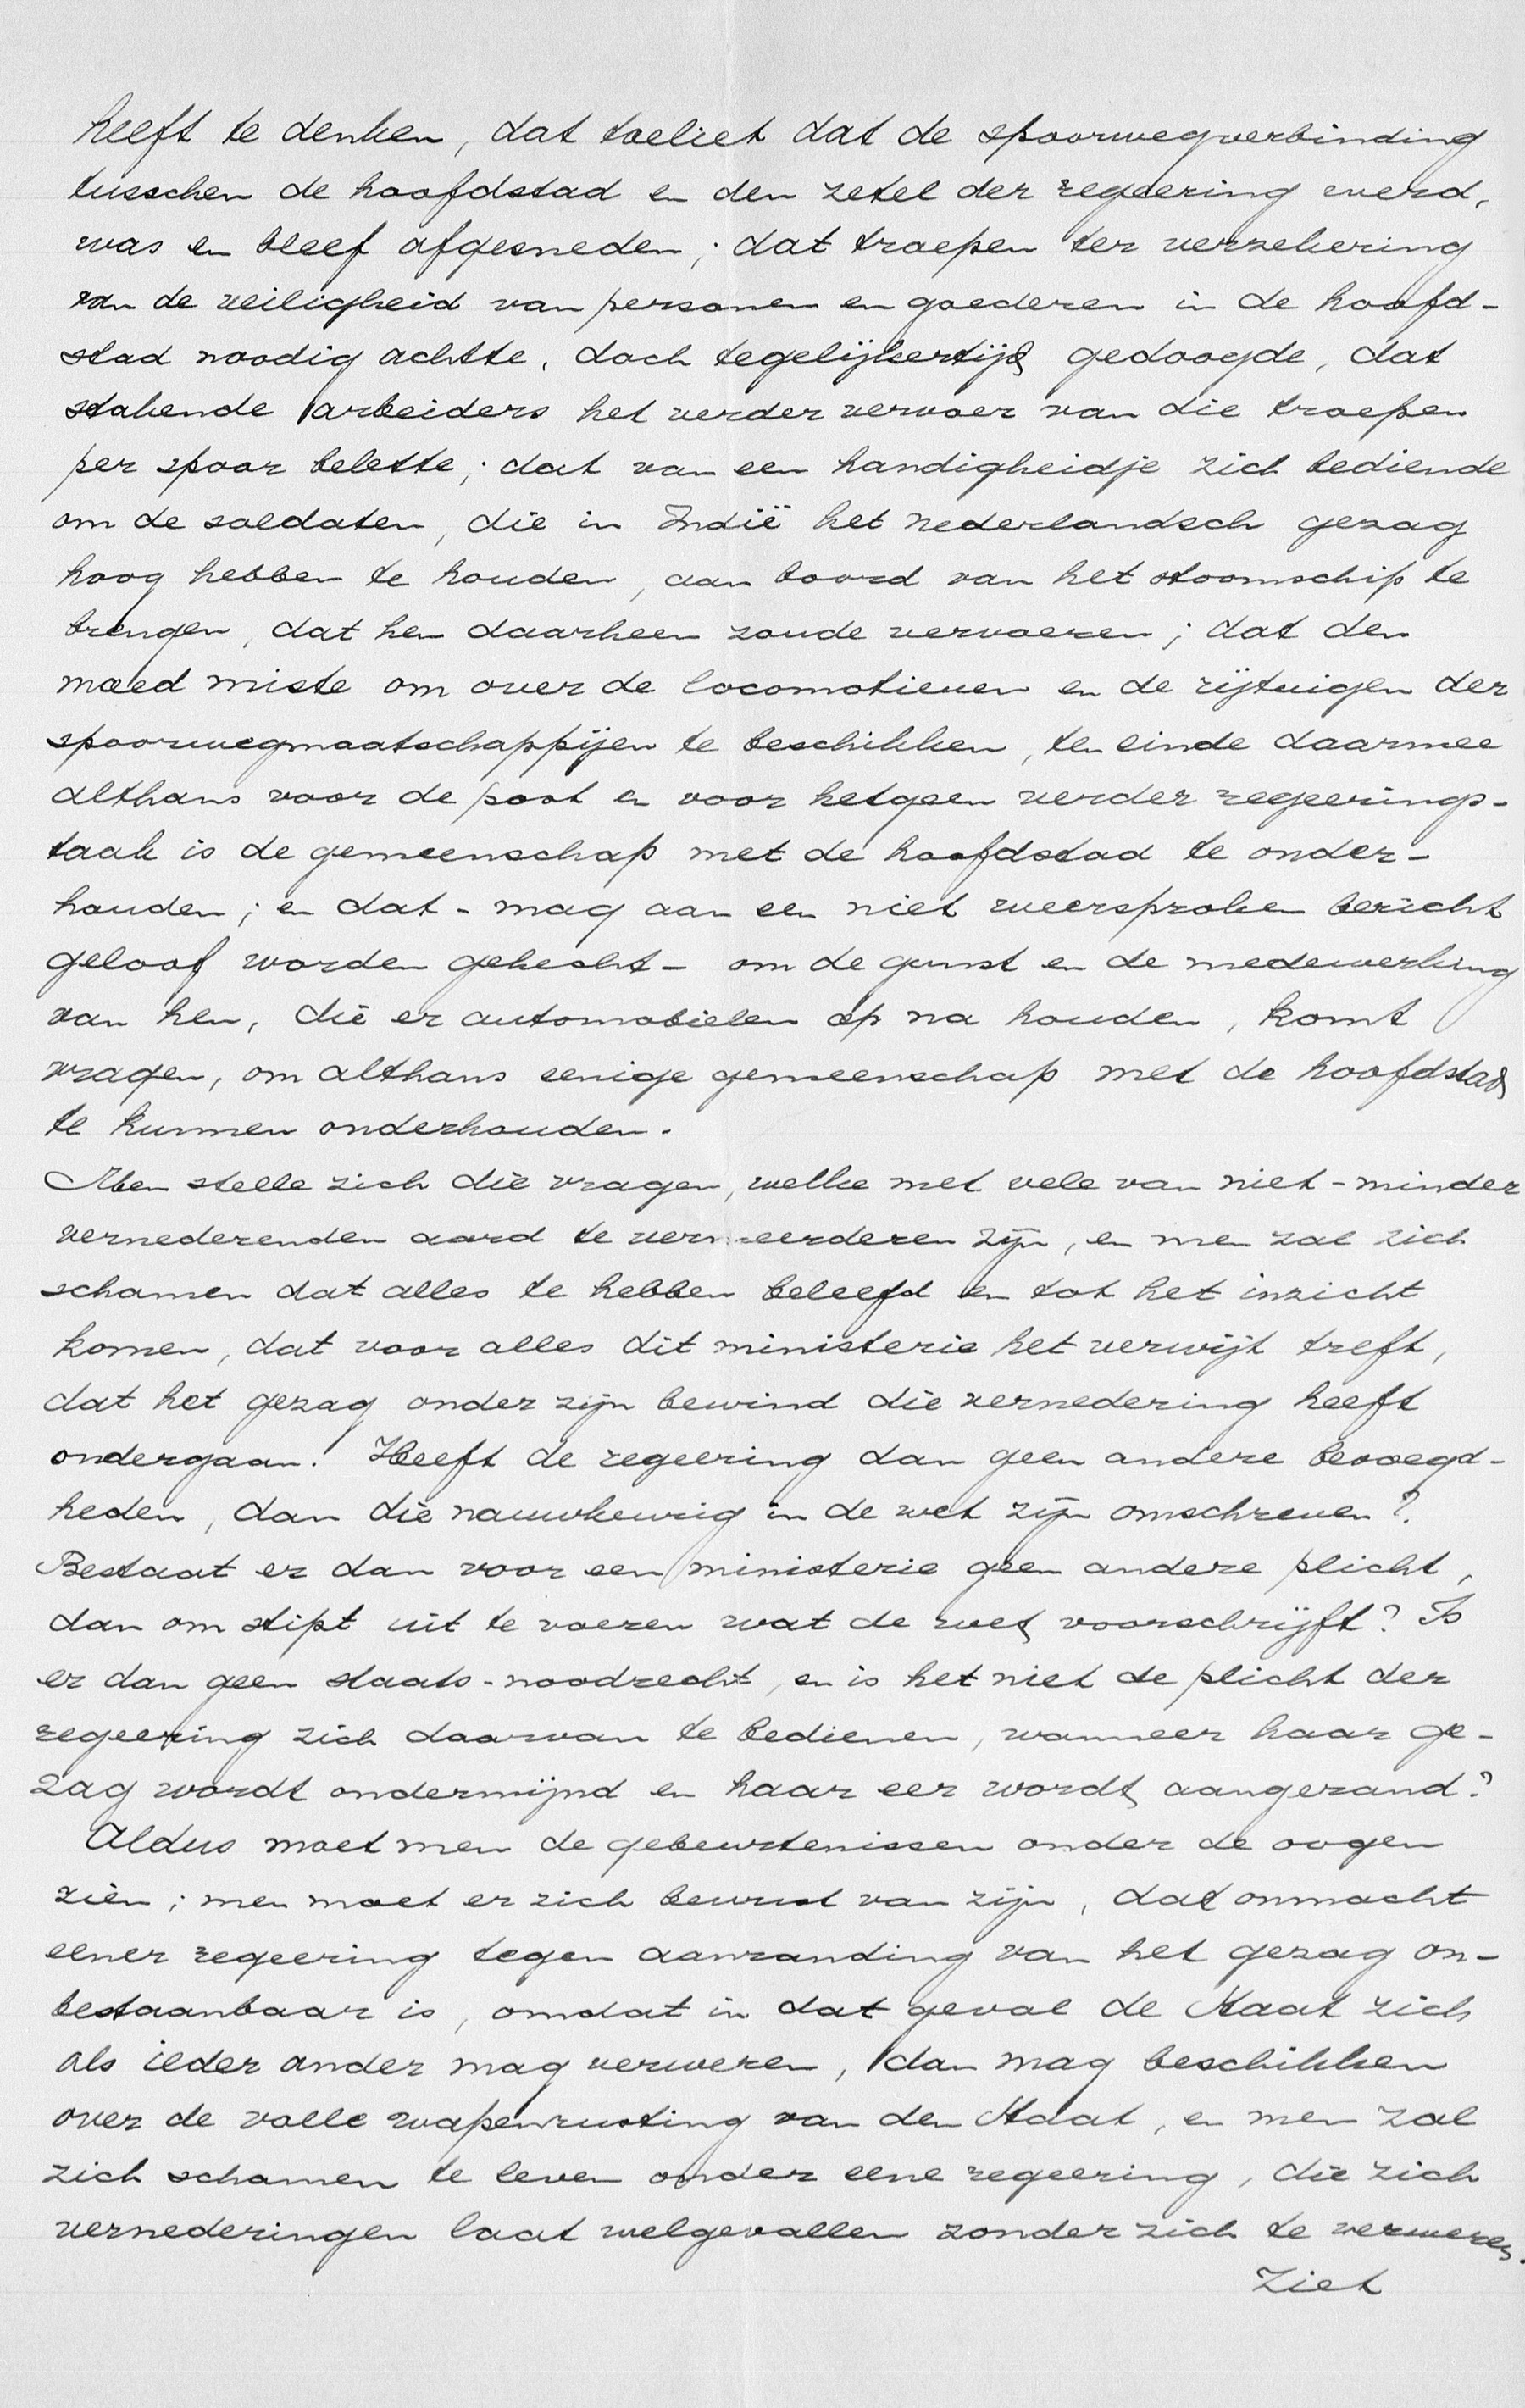 heeft te denken, dat toeliet dat de spoorwegverbinding
tusschen de hoofdstad en den zetel der regeering werd,
was en bleef afgesneden; dat troepen ter verzekering
van de veiligheid van personen en goederen in de hoofd-
stad noodig achtte, doch tegelijkertijd gedoogde, dat
stakende arbeiders het verder vervoer van die troepen
per spoor belette; dat van een handigheidje zich bediende
om de soldaten, die in Indië het nederlandsch gezag
hoog hebben te houden, aan boord van het stoomschip te
brengen, dat hen daarheen zoude vervoeren; dat den
moed miste om over de locomotieven en de rijtuigen der
spoorwegmaatschappijen te beschikken, ten einde daarmee
althans voor de post en voor hetgeen verder regeerings-
taak is de gemeenschap met de hoofdstad te onder-
houden; en dat - mag aan een niet weersproken bericht
geloof worden gehecht - om de gunst en de medewerking
van hen, die er automobielen op na houden, komt
vragen, om althans eenige gemeenschap met de hoofdstad
te kunnen onderhouden.
Men stelle zich die vragen, welke met vele van niet-minder
vernederenden aard te vermeerderen zijn, en men zal zich
schamen dat alles te hebben beleefd en tot het inzicht
komen, dat voor alles dit ministerie het verwijt treft,
dat het gezag onder zijn bewind die vernedering heeft
ondergaan. Heeft de regeering dan geen andere bevoegd-
heden, dan die nauwkeurig in de wet zijn omschreven?
Bestaat er dan voor een ministerie geen andere plicht,
dan om stipt uit te voeren wat de wet voorschrijft? Is
er dan geen staats-noodrecht, en is het niet de plicht der
regeering zich daarvan te bedienen, wanneer haar ge-
zag wordt ondermijnd en haar eer wordt aangerand?
Aldus moet men de gebeurtenissen onder de oogen
zien; men moet er zich bewust van zijn, dat onmacht
eener regeering tegen aanranding van het gezag on-
bestaanbaar is, omdat in dat geval de Staat zich
als ieder ander mag verweren, dan mag beschikken
over de volle wapenrusting van den Staat, en men zal
zich schamen te leven onder eene regeering, die zich
vernederingen laat welgevallen zonder zich te verweren.
Ziet